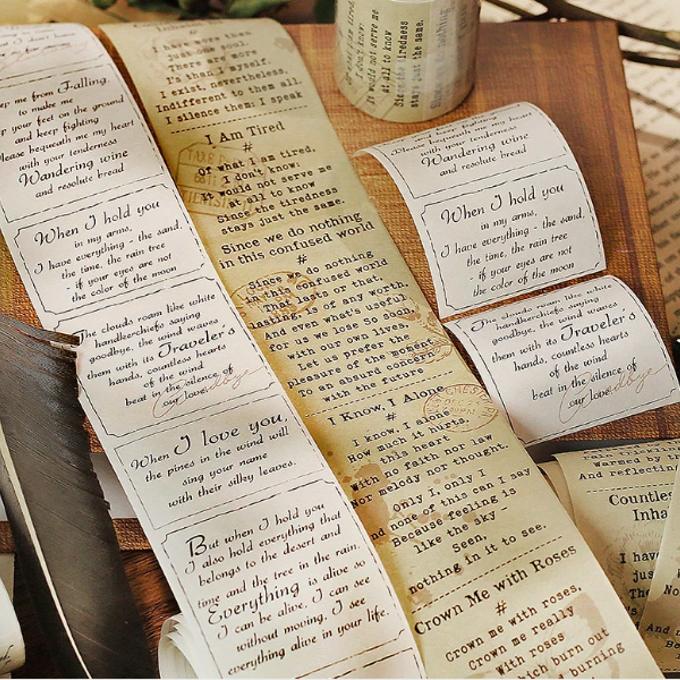 so far away
Keep me from Falling,
to make me
keep your feet on the ground
and keep fighting
Please bequeath me my heart
with your tenderness
Wandering wine
and resolute bread
When I hold you
in my arms,
I have everything - the sand,
the time, the rain tree
- if your eyes are not
the color of the moon
The clouds roam like white
handkerchiefs saying
goodbye, the wind waves
them with its Traveler's
hands, countless hearts
of the wind
beat in the silence of
our love.
goodbye
When I love you,
the pines in the wind will
sing your name
with their silky leaves.
But when I hold you
I also hold everything that
belongs to the desert and
time and the tree in the rain.
Everything is alive so
I can be alive, I can see
without moving, I see
everything alive in your life.
Countless
Inhabit
I have more than
just one soul.
There are more
I's than I myself.
I exist, nevertheless,
Indifferent to them all,
I silence them: I speak
I Am Tired
#
Of what I am tired,
I don't know:
It would not serve me
at all to know
Since the tiredness
stays just the same.
Since we do nothing
in this confused world
#
Since we do nothing
in this confused world
That lasts or that,
lasting, is of any worth,
And even what's useful
for us we lose so soon
with our own lives,
Let us prefer the
pleasure of the moment
To an absurd concern
with the future
I Know, I Alone
#
I know, I alone
How much it hurts,
this heart
With no faith nor law
Nor melody nor thought.
Only I, only I
And none of this can I say
Because feeling is
like the sky -
Seen,
nothing in it to see.
Crown Me with Roses
#
Crown me with roses,
Crown me really
With roses
which burn out
burning
tired,
I don't know:
It would not serve me
at all to know
Since the tiredness
stays just the same.
and keep fighting
Please bequeath me my heart
with your tenderness
Wandering wine
and resolute bread
When I hold you
in my arms,
I have everything - the sand,
the time, the rain tree
- if your eyes are not
the color of the moon
The clouds roam like white
handkerchiefs saying
goodbye, the wind waves
them with its Traveler's
hands, countless hearts
of the wind
beat in the silence of
our love.
goodbye
Warmed by th
And reflectin
Countles
Inha
I hav
Jus
The
I'
And n